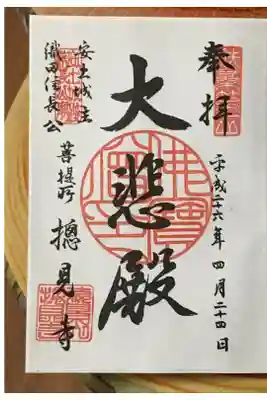 奉拝
平成二六年四月二十四日
大悲殿
安土城主
織田信長公
菩提所
摠見寺